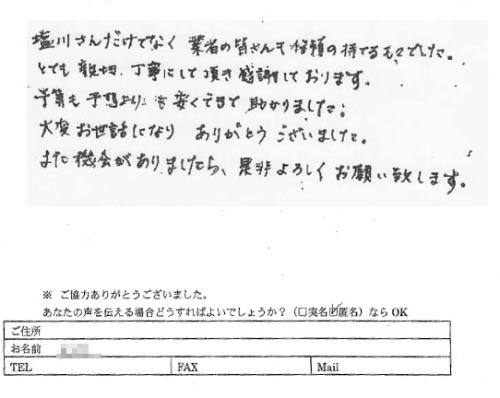 塩川さんだけでなく 業者の皆さんも信頼の持てるものでした。
とても親切、丁寧にして頂き感謝しております。
予算も予想よりも安くできて助かりました。
大変お世話になり ありがとうございました。
また機会がありましたら、是非よろしくお願い致します。
※ ご協力ありがとうございました。
あなたの声を伝える場合どうすればよいでしょうか？（□実名☑匿名）なら OK
ご住所
お名前
TEL FAX Mail